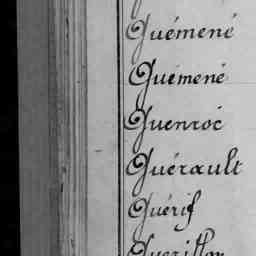 Guémené
Guémené
Guenroc
Guérault
Guérif
Guerillon